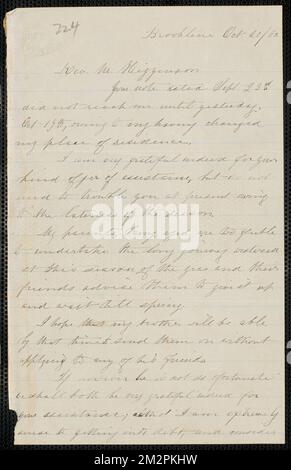 224
Brookline Oct 20/60
Rev. Mr. Higginson
Your note dated Sept 23rd
did not reach me until yesterday,
Oct 19th, owing to my having changed
my place of residence.
I am very grateful indeed for your
kind offer of assistance, but do not
need to trouble you at present owing
to the lateness of the season
My parents being aged are too feeble
to undertake the long journey westward
at this season of the year and their
friends advise them to give it up
and wait till spring.
I hope that my brother will be able
by that time to send them on without
applying to any of his friends
If however he is not so fortunate
we shall both be very grateful indeed for
your assistance; as I am extremely
averse to getting into debt, and consider
alamy
Image ID: 2M2PKHW
www.alamy.com